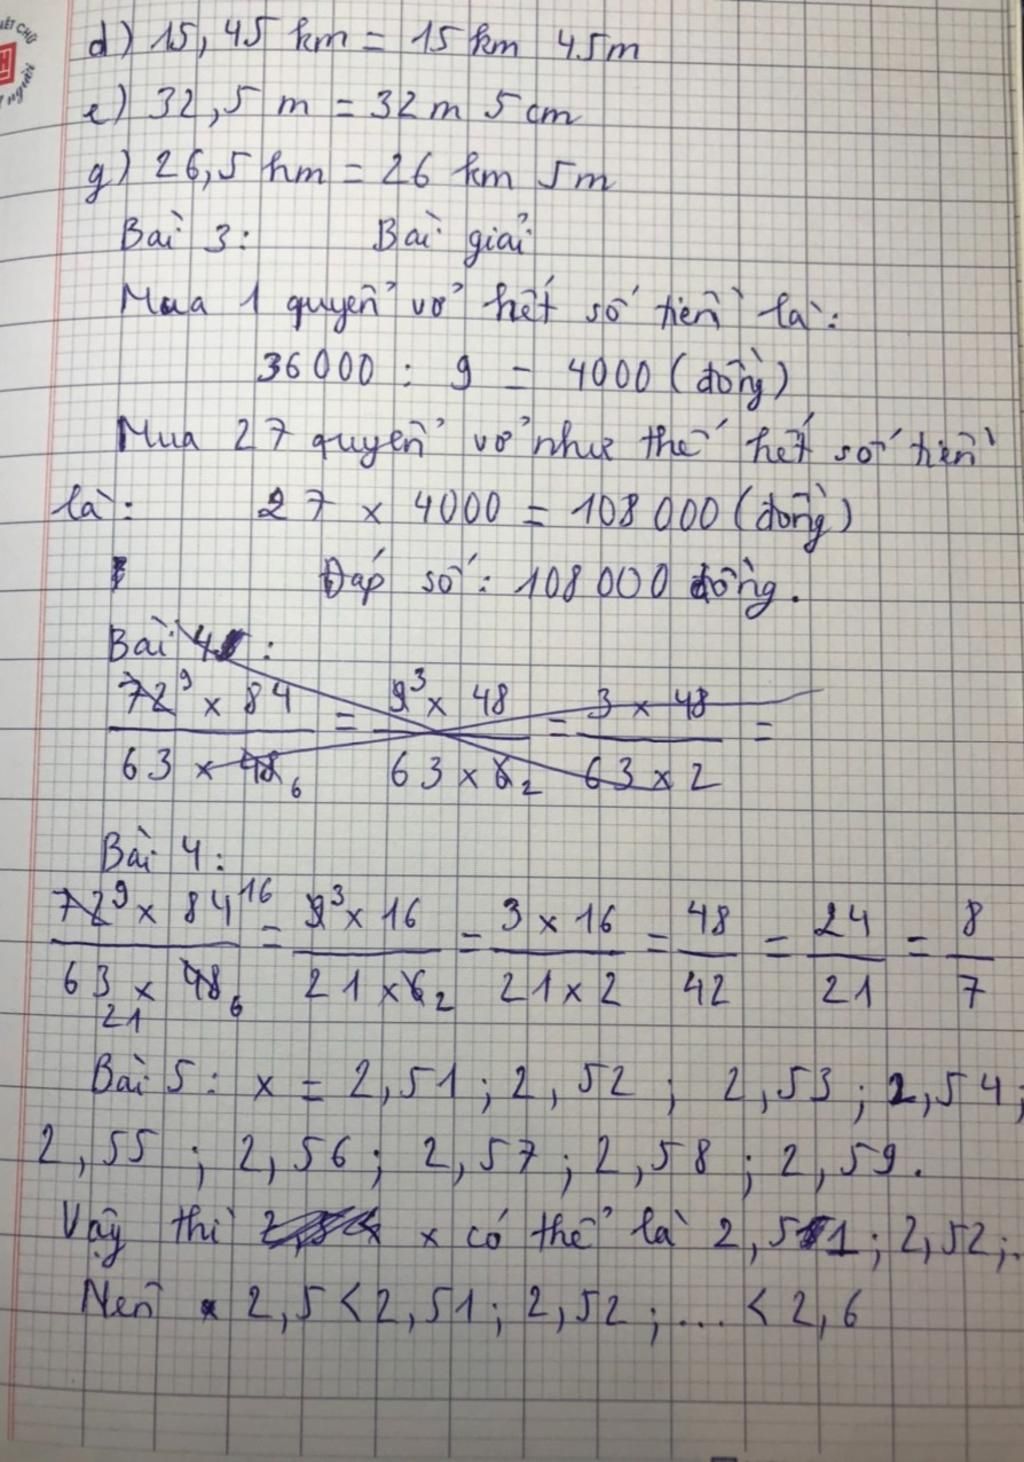 d) 15,45 km = 15 km 45m
e) 32,5 m = 32 m 5 cm
g) 26,5 hm = 26 km 5m
Bài 3: Bài giải
Mua 1 quyển vở hết số tiền là:
36000 : 9 = 4000 (đồng)
Mua 27 quyển vở như thế hết số tiền
là: 27 x 4000 = 108 000 (đồng)
Đáp số: 108 000 đồng.
Bài 4:
72 9 x 84 / 63 x 48 6 = 9 3 x 48 / 63 x 6 2 = 3 x 48 / 63 x 2 =
Bài 4:
72 9 x 84 16 / 63 21 x 48 6 = 9 3 x 16 / 21 x 6 2 = 3 x 16 / 21 x 2 = 48 / 42 = 24 / 21 = 8 / 7
Bài 5: x = 2,51; 2,52; 2,53; 2,54;
2,55; 2,56; 2,57; 2,58; 2,59.
Vậy thì x có thể là 2,51; 2,52;..
Nên 2,5 < 2,51; 2,52; ... < 2,6